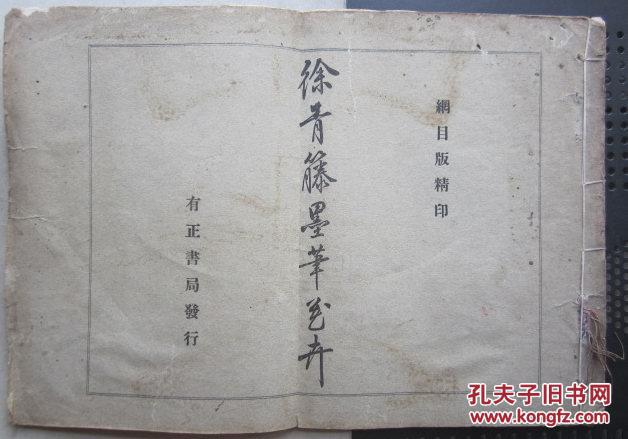 網目版精印
徐青籐墨筆花卉
有正書局發行
孔夫子旧书网
www.kongfz.com